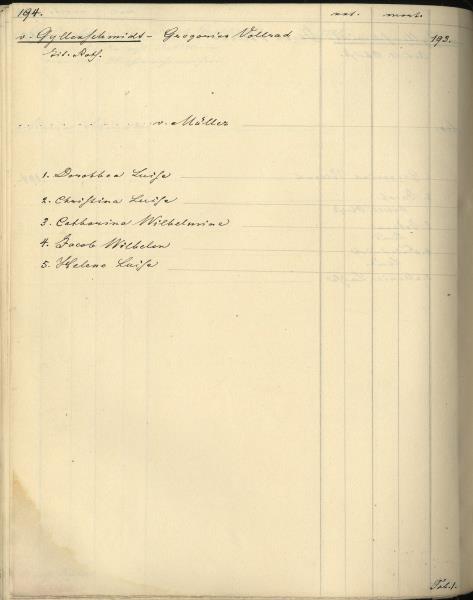 194. nat. mort.
v. Gyllenschmidt - Gregorius Vollrad 193.
Lit. Rath.
v. Müller
1. Dorothea Luise
2. Christina Luise
3. Catharina Wilhelmine
4. Jacob Wilhelm
5. Helene Luise
Tab. 1.